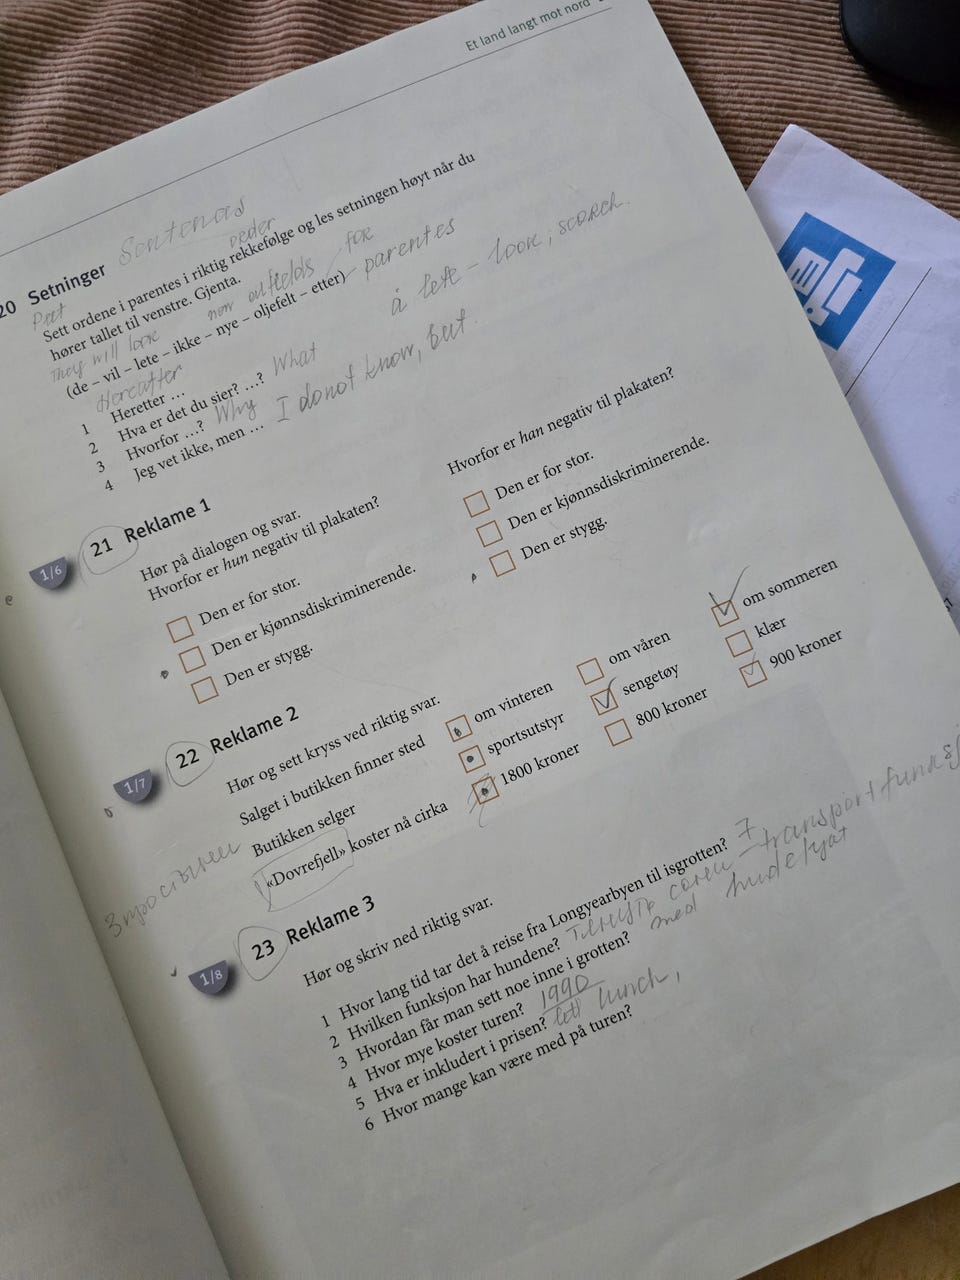 Et land langt mot nord
Sentenas
20 Setninger
order
Sett ordene i parentes i riktig rekkefølge og les setningen høyt når du
hører tallet til venstre. Gjenta.
They will look new oilfields for
(de – vil – lete – ikke – nye – oljefelt – etter) parentes
Hereafter
å lete – look; search.
1 Heretter ...
2 Hva er det du sier? ...? What
3 Hvorfor ...? Why
4 Jeg vet ikke, men ... I do not know, but.
1/6
21 Reklame 1
Hør på dialogen og svar.
Hvorfor er hun negativ til plakaten?
Den er for stor.
Den er kjønnsdiskriminerende.
Den er stygg.
Hvorfor er han negativ til plakaten?
Den er for stor.
Den er kjønnsdiskriminerende.
Den er stygg.
1/7
22 Reklame 2
Hør og sett kryss ved riktig svar.
Salget i butikken finner sted om vinteren om våren om sommeren
Butikken selger sportsutstyr sengetøy klær
«Dovrefjell» koster nå cirka 1800 kroner 800 kroner 900 kroner
1/8
23 Reklame 3
Hør og skriv ned riktig svar.
1 Hvor lang tid tar det å reise fra Longyearbyen til isgrotten? 7
2 Hvilken funksjon har hundene?
3 Hvordan får man sett noe inne i grotten? med
4 Hvor mye koster turen? 1990
5 Hva er inkludert i prisen? lett lunch,
6 Hvor mange kan være med på turen?